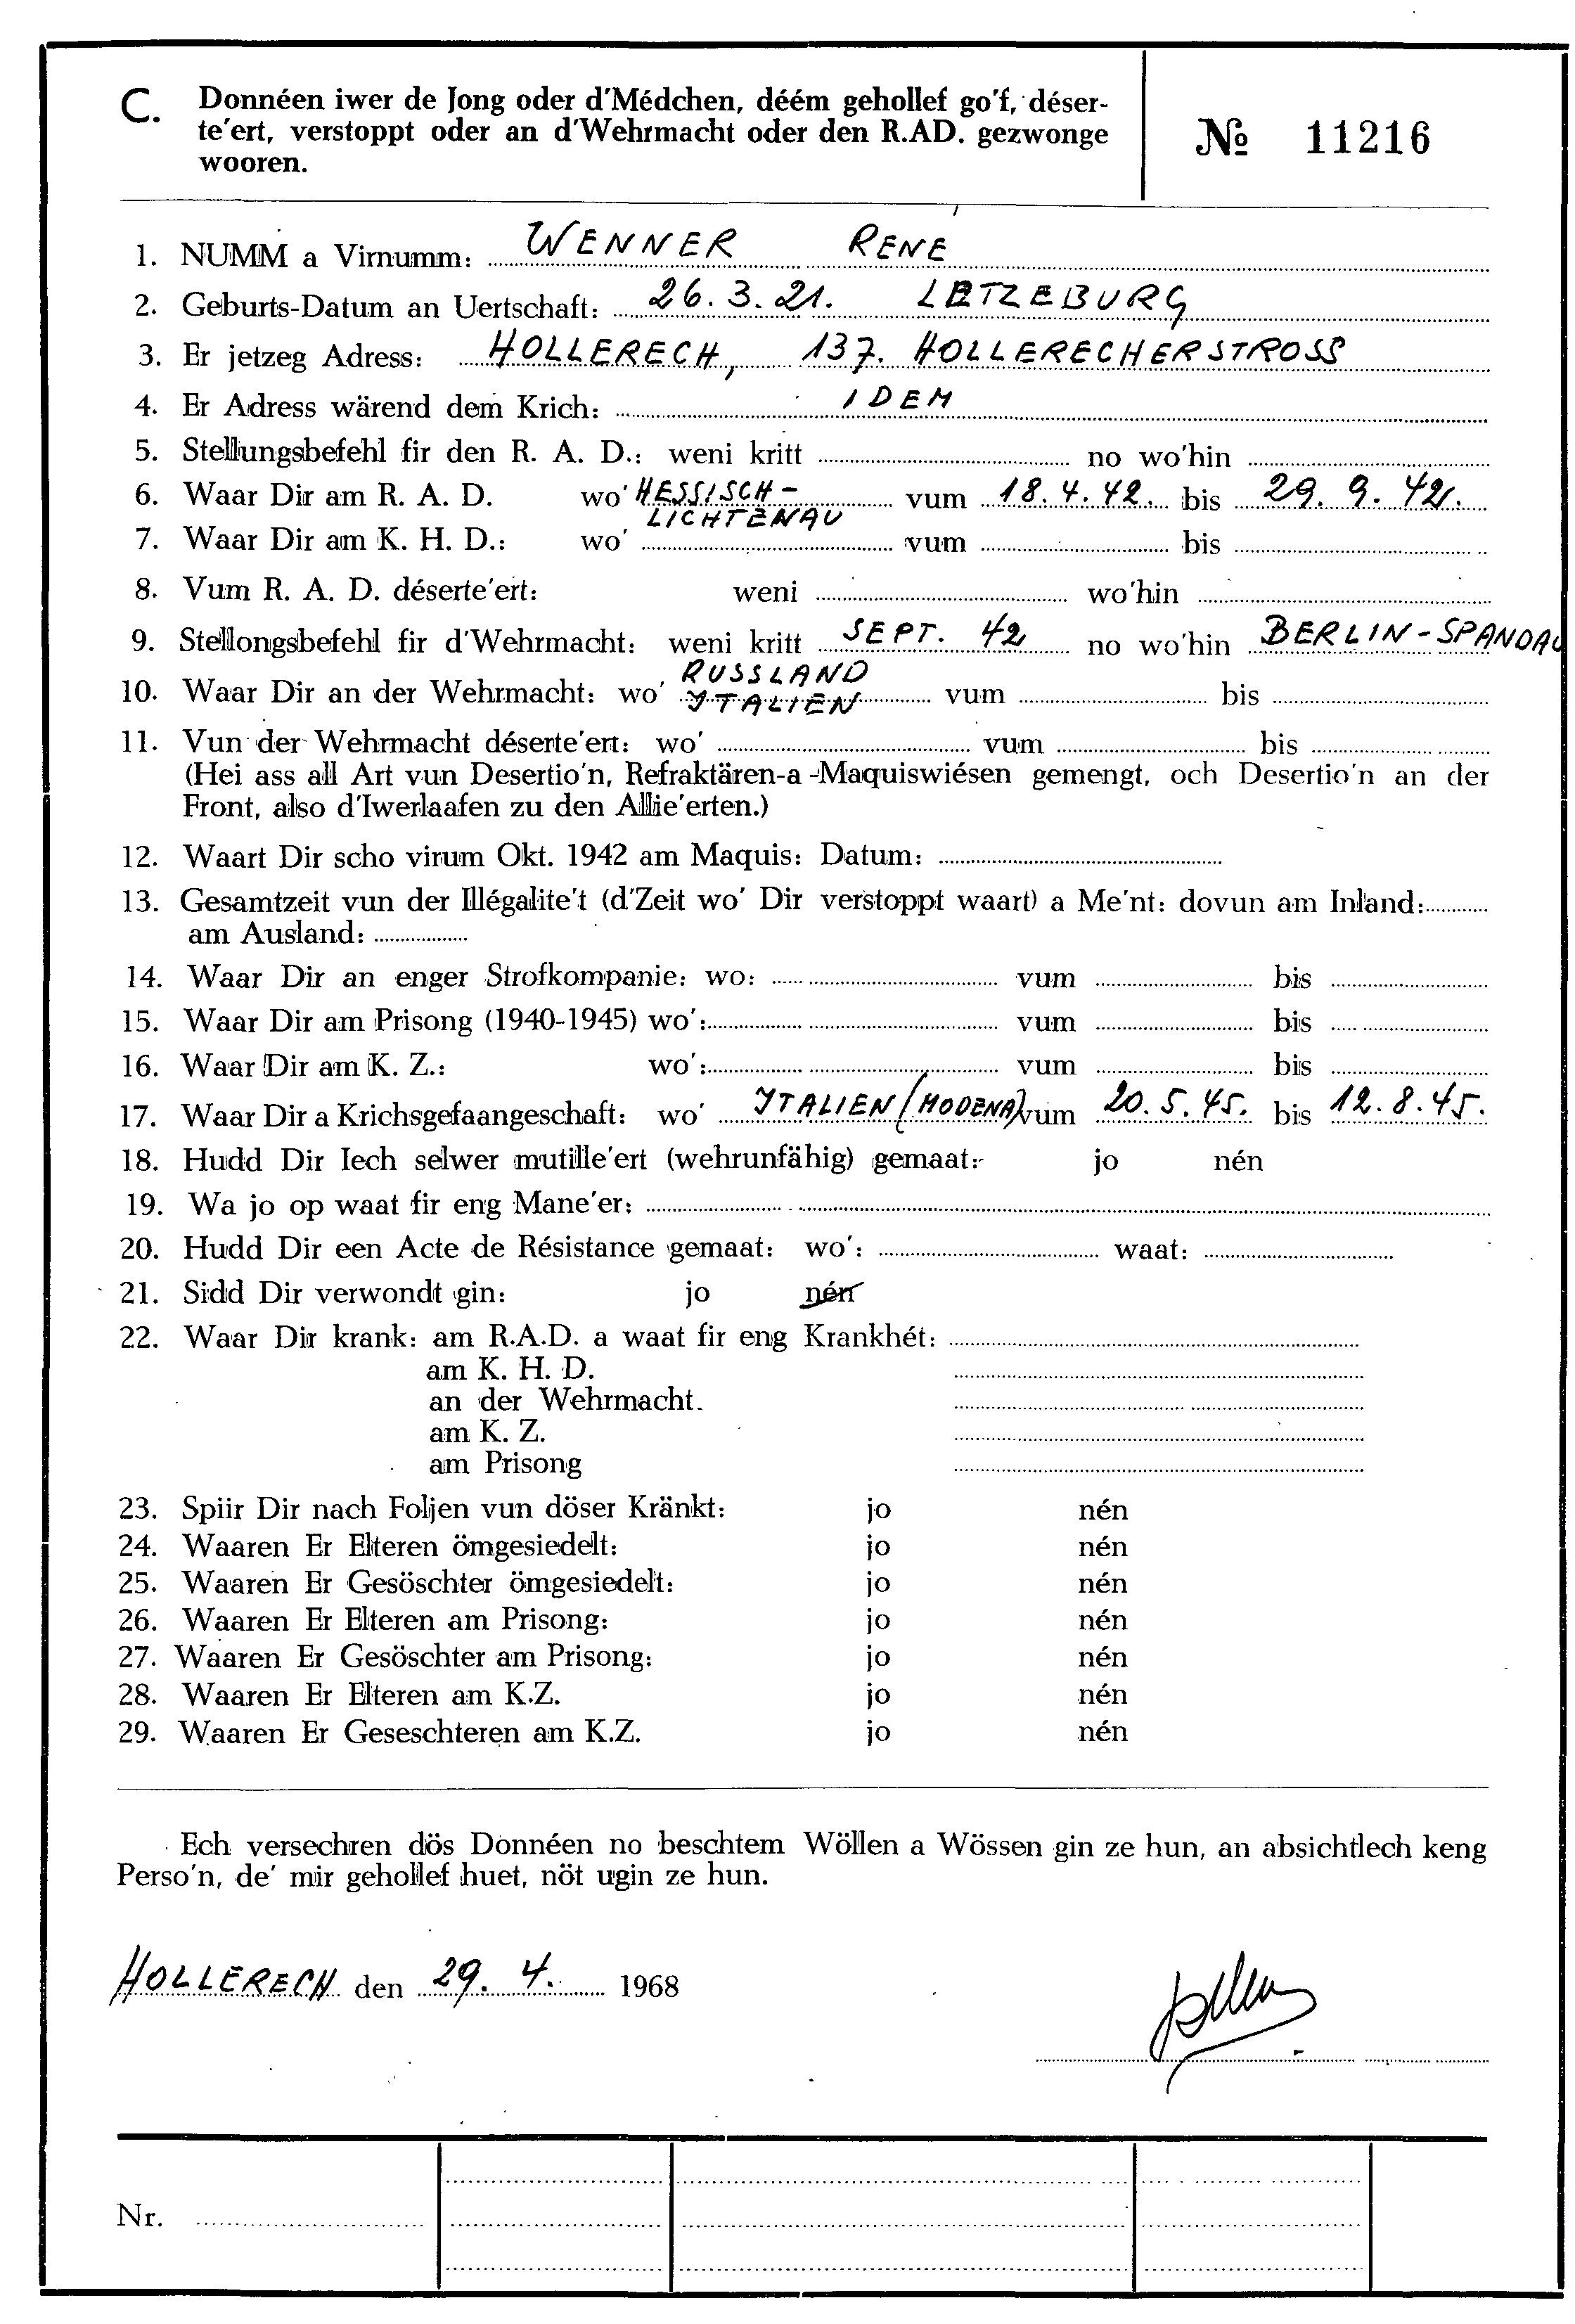 C. Donnéen iwer de Jong oder d'Médchen, déém gehollef go'f, déser-
te'ert, verstoppt oder an d'Wehrmacht oder den R.AD. gezwonge
wooren.
№ 11216
1. NUMM a Virnumm: WENNER RENE
2. Geburts-Datum an Uertschaft: 26.3.21. LETZEBURG
3. Er jetzeg Adress: HOLLERECH, 137. HOLLERECHERSTROSS
4. Er Adress wärend dem Krich: IDEM
5. Stellungsbefehl fir den R. A. D.: weni kritt no wo'hin
6. Waar Dir am R. A. D. wo' HESSISCH- vum 18.4.42. bis 29.9.42.
LICHTENAU
7. Waar Dir am K. H. D.: wo' vum bis
8. Vum R. A. D. déserte'ert: weni wo'hin
9. Stellongsbefehl fir d'Wehrmacht: weni kritt SEPT. 42 no wo'hin BERLIN-SPANDAU
RUSSLAND
10. Waar Dir an der Wehrmacht: wo' ITALIEN vum bis
11. Vun der Wehrmacht déserte'ert: wo' vum bis
(Hei ass all Art vun Desertio'n, Refraktären-a-Maquiswiésen gemengt, och Desertio'n an der
Front, also d'Iwerlaafen zu den Allie'erten.)
12. Waart Dir scho virum Okt. 1942 am Maquis: Datum:
13. Gesamtzeit vun der Illégalite't (d'Zeit wo' Dir verstoppt waart) a Me'nt: dovun am Inland:
am Ausland:
14. Waar Dir an enger Strofkompanie: wo: vum bis
15. Waar Dir am Prisong (1940-1945) wo': vum bis
16. Waar Dir am K. Z.: wo': vum bis
17. Waar Dir a Krichsgefaangeschaft: wo' ITALIEN (MODENA) vum 20.5.45. bis 12.8.45.
18. Hudd Dir Iech selwer mutille'ert (wehrunfähig) gemaat: jo nén
19. Wa jo op waat fir eng Mane'er:
20. Hudd Dir een Acte de Résistance gemaat: wo': waat:
21. Sidd Dir verwondt gin: jo nén
22. Waar Dir krank: am R.A.D. a waat fir eng Krankhét:
am K. H. D.
an der Wehrmacht.
am K. Z.
am Prisong
23. Spiir Dir nach Foljen vun döser Kränkt: jo nén
24. Waaren Er Elteren ömgesiedelt: jo nén
25. Waaren Er Gesöschter ömgesiedelt: jo nén
26. Waaren Er Elteren am Prisong: jo nén
27. Waaren Er Gesöschter am Prisong: jo nén
28. Waaren Er Elteren am K.Z. jo nén
29. Waaren Er Geseschteren am K.Z. jo nén
Ech versechren dös Donnéen no beschtem Wöllen a Wössen gin ze hun, an absichtlech keng
Perso'n, de' mir gehollef huet, nöt ugin ze hun.
HOLLERECH den 29. 4. 1968
Nr.